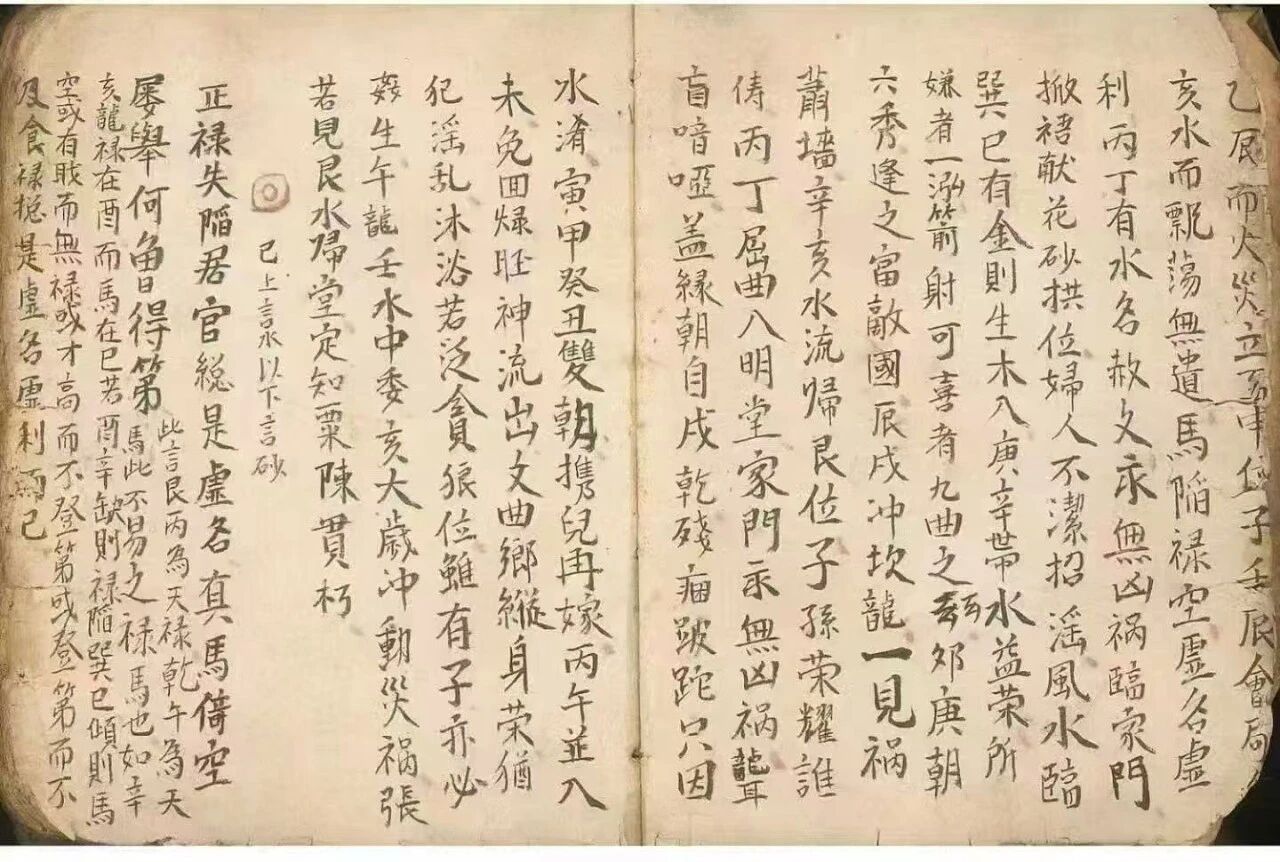 乙辰而火災立至申位子壬辰會局
亥水而飄蕩無遺馬陷禄空虛名虛
利丙丁有水名赦文永無凶祸臨家門
掀裙献花砂拱位婦人不潔招淫風水臨
巽巳有金則生木入庚辛带水益荣所
嫌者一泓箭射可喜者九曲之玄卯庚朝
六秀逢之富敵國辰戌冲坎龍一見祸
蕭墻辛亥水流歸艮位子孫荣耀誰
俦丙丁屈曲入明堂家門永無凶祸聾
盲喑啞盖緣朝自戌乾残痼跛跎只因
水淆寅甲癸丑雙朝攜兒再嫁丙午並入
未免回禄胚神流出文曲鄉縱身荣猶
犯淫乱沐浴若泛貪狼位雖有子亦必
姦生午龍壬水中委亥大歲冲動災祸張
若見艮水歸堂定知粟陳貫朽
已上言水以下言砂
正禄失陷君官総是虛名真馬倚空
屡舉何曾得第此言艮丙為天禄乾午為天
馬此不易之禄馬也如辛
亥龍禄在酉而馬在巳若酉辛缺則禄陷巽巳傾則馬
空或有職而無禄或才高而不登第或登第而不
及食禄摠是虛名虛利而已